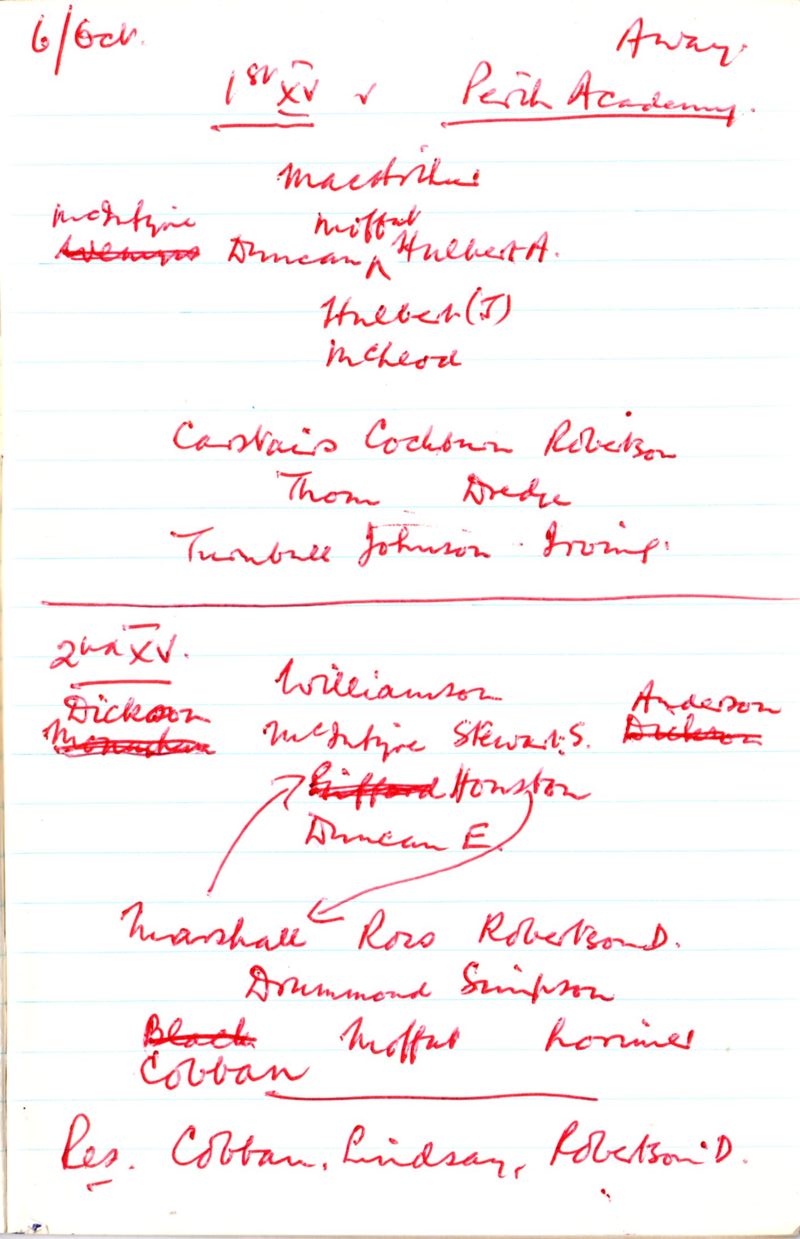 6/Oct. Away.
1st XV v Perth Academy.
MacArthur
McIntyre Moffat
Duncan Hulbert A.
Hulbert (J)
McLeod
Carstairs Cockburn Robertson
Thom Dredge
Turnbull Johnson Irving.
2nd XV.
Williamson
Dickson Anderson
Monaghan McIntyre Stewart S. Dickson
Gifford Houston
Duncan E.
Marshall Ross Robertson D.
Drummond Simpson
Black Moffat Lorimer
Cobban
Res. Cobban, Lindsay, Robertson D.